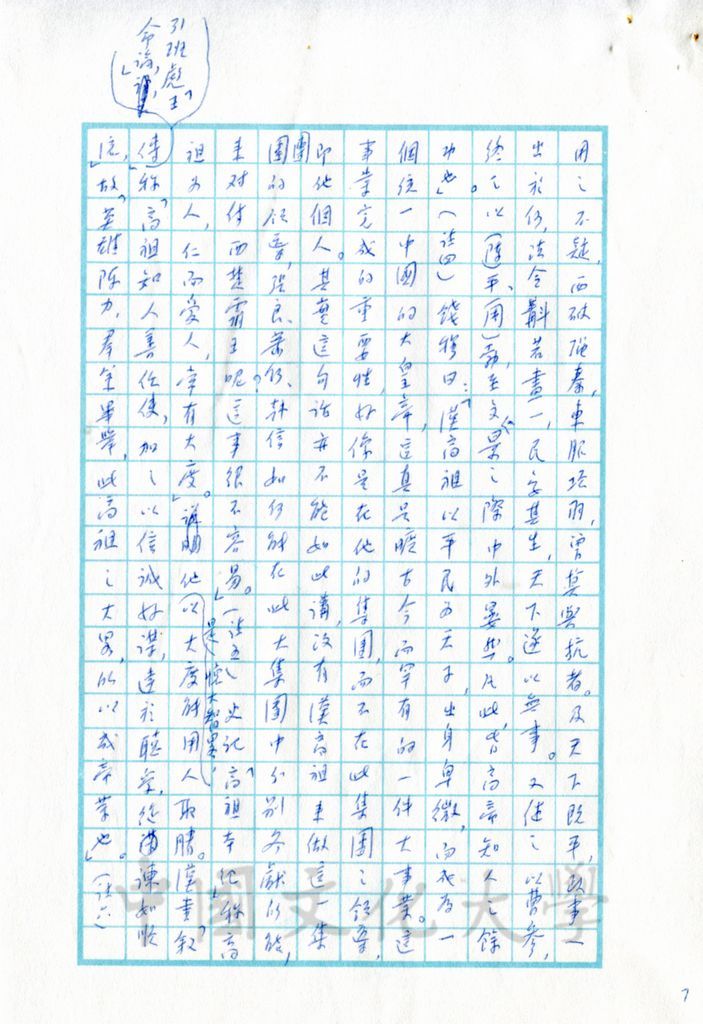 用之不疑，西破強秦，東服項羽，曾莫與抗者。及天下既平，政事一
出於何，法令斠若畫一，民安其生，天下遂以無事。又使之以曹參，
終之以（陳平、周）勃，至文、景之際，中外晏然。凡此，皆高帝知人之餘
功也」（註四）錢穆曰：「漢高祖以平民為天子，出身卑微，而成為一
個統一中國的大皇帝，這真是曠古今而罕有的一件大事業。這
事業完成的重要性，好像是在他的集團，而不在此集團之領導，
即他個人。其實這句話亦不能如此講，沒有漢高祖來做這一集
團的領導，張良、蕭何、韓信如何能在此大集團中分別各獻所能，
來對付西楚霸王呢？這事很不容易。」（註五）史記「高祖本紀」稱高
祖為人，「仁而愛人，常有大度」。說明他以大度能用人取勝。漢書敘
傳
引班彪「王命論」，
稱「高祖知人善任使，加之以信誠好謀，達於聽受，從諫如順
流，故英雄陳力，羣策畢舉，此高祖之大略，所以成帝業也」。（註六）
中國文化大學
7